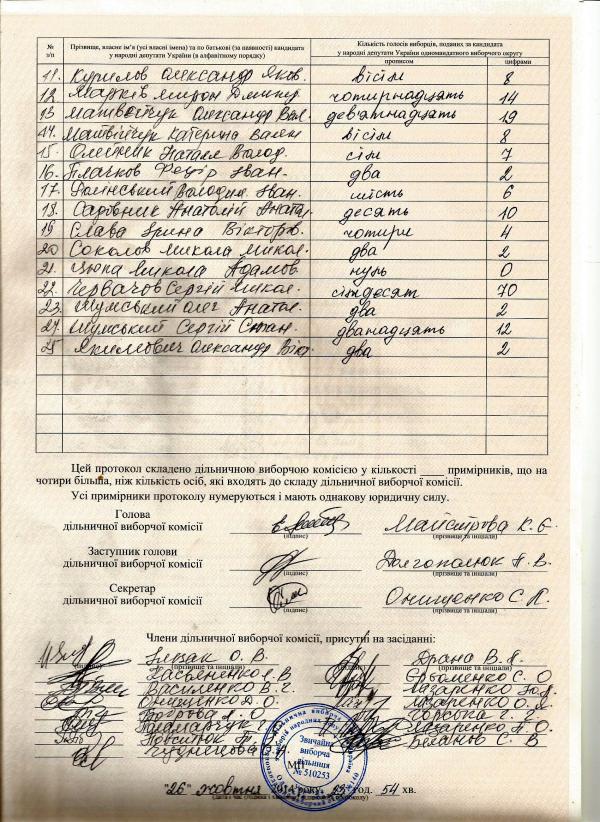 № з/п
Прізвище, власне ім'я (усі власні імена) та по батькові (за наявності) кандидата у народні депутати України (в алфавітному порядку)
Кількість голосів виборців, поданих за кандидата у народні депутати України одномандатного виборчого округу
прописом цифрами
11. Курилов Олександр Яков. вісім 8
12 Мирон чотирнадцять 14
13 Матвійчук Олександр дев'ятнадцять 19
14. Матвійчук Катерина вісім 8
15. Олейник Наталя Волод. сім 7
16. Плачков Федір Іван. два 2
17. Володим. Іван. шість 6
18. Садовник Анатолій Анатол. десять 10
19 Слава Ірина Вікторів. чотири 4
20 Соколов Микола Микол. два 2
21. Цюпа Микола Адамов нуль 0
22. Червачов Сергій Микол. сімдесят 70
23. Шумський Олег Анатол. два 2
24. Шумський Сергій Степан. дванадцять 12
25 Якимович Олександр Вікт. два 2
Цей протокол складено дільничною виборчою комісією у кількості ____ примірників, що на
чотири більша, ніж кількість осіб, які входять до складу дільничної виборчої комісії.
Усі примірники протоколу нумеруються і мають однакову юридичну силу.
Голова
дільничної виборчої комісії Майстрова К. Є.
(підпис) (прізвище та ініціали)
Заступник голови
дільничної виборчої комісії Долгополюк П. В.
(підпис) (прізвище та ініціали)
Секретар
дільничної виборчої комісії Онищенко С. П.
(підпис) (прізвище та ініціали)
Члени дільничної виборчої комісії, присутні на засіданні:
О. В. Драна В. Я.
(підпис) (прізвище та ініціали) (підпис) (прізвище та ініціали)
Касьяненко В. Єрьоменко С. О
Василенко В. Г. Лазаренко Ю.
Онищенко Д. О. Лазаренко О.
Боброва О. Горська Г.
Лазаренко О.
С. В
Кузнецова
Звичайна
виборча
дільниця
№ 510253
МП
"26" жовтня 2014 року, год. 54 хв.